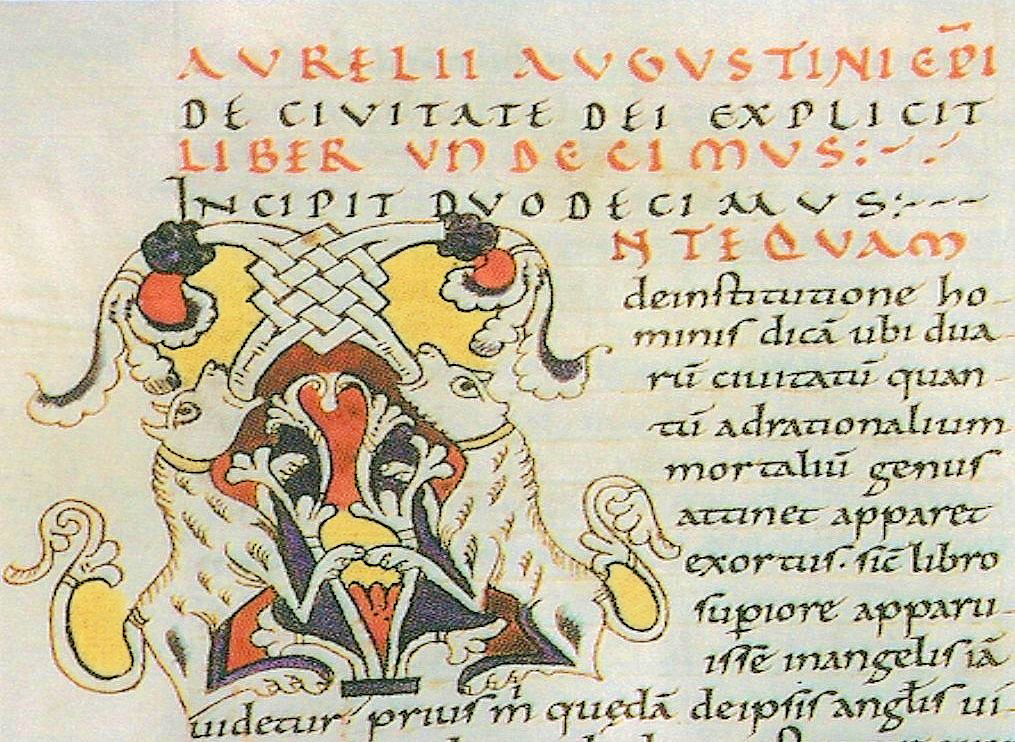 AURELII AUGUSTINI EP̄I
DE CIUITATE DEI EXPLICIT
LIBER UNDECIMUS:~.~
INCIPIT DUODECIMUS:---
NTEQUAM
deinstitutione ho-
minis dicā ubi dua-
rū ciuitatū quan-
tū adrationalium
mortaliū genus
attinet apparet
exortus. sic̄ libro
sup̱iore apparu-
isse ̄ inangelis iā
uidetur. prius m̍ quędā deipsis anglis ui-